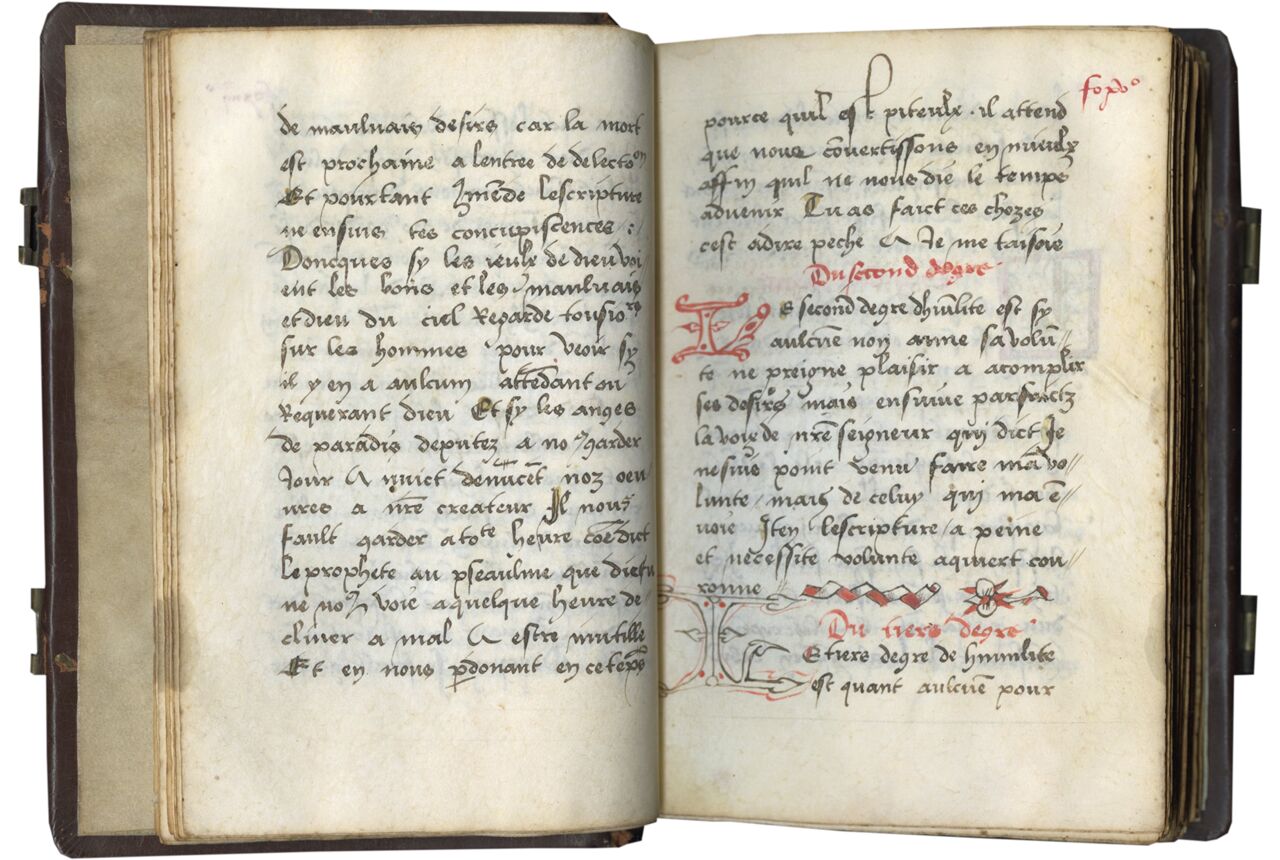 de maulvais desirs car la mort
est prochaine a lentree de delecto͞n
Et pourtant 2mẽde lescripture
ne ensuis tes concupiscences :
Doncques sy les ieulx de dieu voi//
ent les bons et les maulvais
et dieu du ciel Regarde tousiors
sur les hommes pour veoir sy
il y en a aulcum attẽdant ou
Requerant dieu Et sy les anges
de paradis deputez a no9 garder
Jour & nuict denũcẽt noz oeu
vres a nr̃e createur Il nous
fault garder a tote heure cõe dict
le prophete au pseaulme que dieu
ne no9 voie a quelque heure de-
cliner a mal & estre inutille
Et en nous p̲donant en ce temps
fo xvo
pource quil est piteulx . il attend
que nous cõvertissons en mieulx
affin quil ne nous die le temps
advenir Tu as faict ces chozes
cest adire peche & Je me taisoie
Du second degre
LE second degre dhũilite est sy
aulcũe non aĩme sa volũ-
te ne preigne plaisir a acomplir
ses desirs mais ensuive par faictz
la voie de nr̃e seigneur qui dict Je
ne suis point venu faire ma vo//
lunte . mais de celuy qui ma ẽ//
voie Itẽ lescripture . a peine
et necessite volunte aquiert cou-//
ronne
Du tiers degre
LE tiers degre de humilite
est quant aulcũe pour